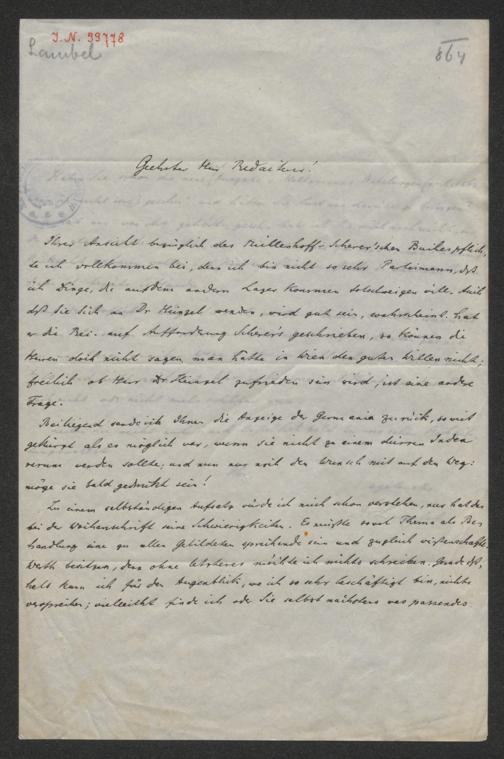 J. N. 99778
Lambel
864
Geehrter Herr Redacteur!
Ihrer Ansicht bezüglich des Müllenhoff-Scherer'schen Buches pflich-
te ich vollkommen bei, denn ich bin nicht so sehr Parteimann, daß
ich Dinge, die aus dem andern Lager kommen todschweigen will. Auch
daß Sie sich an Dr Heinzel wenden, wird gut sein, wahrscheinl. hat
er die Rec. auf Aufforderung Scherer's geschrieben, so können die
Herren doch nicht sagen man hätte in Wien den guten Willen nicht;
freilich ob Herr Dr Heinzel zufrieden sein wird, ist eine andere
Frage.
Beiliegend sende ich Ihnen die Anzeige der Germania zurück, so weit
gekürzt als es möglich war, wenn sie nicht zu einem dürren Index
rerum werden sollte; und nun nur noch den Wunsch mit auf den Weg:
möge sie bald gedruckt sein!
Zu einem selbständigen Aufsatz würde ich mich schon verstehen, nur hat das
bei der Wochenschrift seine Schwierigkeiten. Es müßte sowol Thema als Be-
handlung eine zu allen Gebildeten sprechende sein und zugleich wißenschaftl.
Werth besitzen, denn ohne letzteres möchte ich nichts schreiben. Gerade deß-
halb kann ich für den Augenblick, wo ich so sehr beschäftigt bin, nichts
versprechen; vielleicht finde ich oder Sie selbst nächstens was passendes